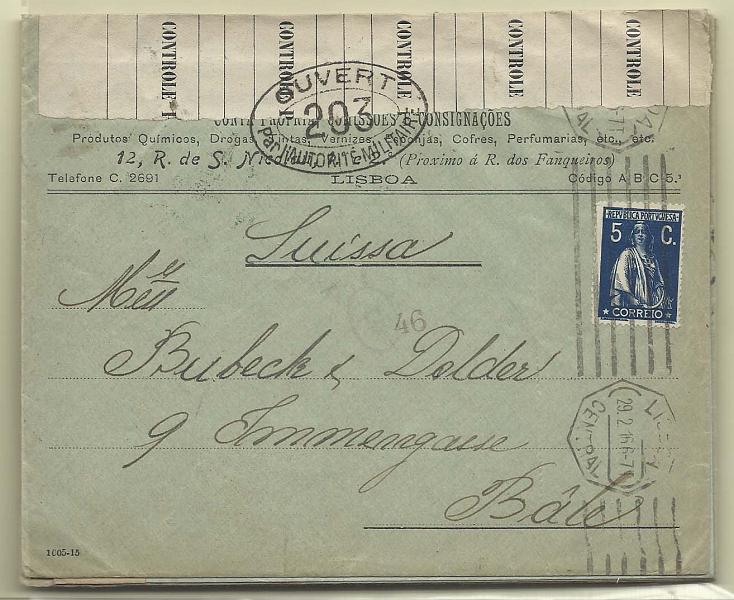 CONTROLE CONTROLE CONTROLE CONTROLE CONTROLE
OUVERT
203
Par l'AUTORITÉ MILITAIRE
CONTA PROPRIA, COMISSÕES E CONSIGNAÇÕES
Produtos Químicos, Drogas, Tintas, Vernizes, Esponjas, Cofres, Perfumarias, etc., etc.
12, R. de S. (Proximo á R. dos Fanqueiros)
Telefone C. 2691 LISBOA Código A B C-5.ª
REPUBLICA PORTUGUESA
5 C.
CORREIO
Suissa
46
Bubeck & Dolder
9 Immengasse
Bâle
29.2.16 6-7
CENTRAL
1005-15